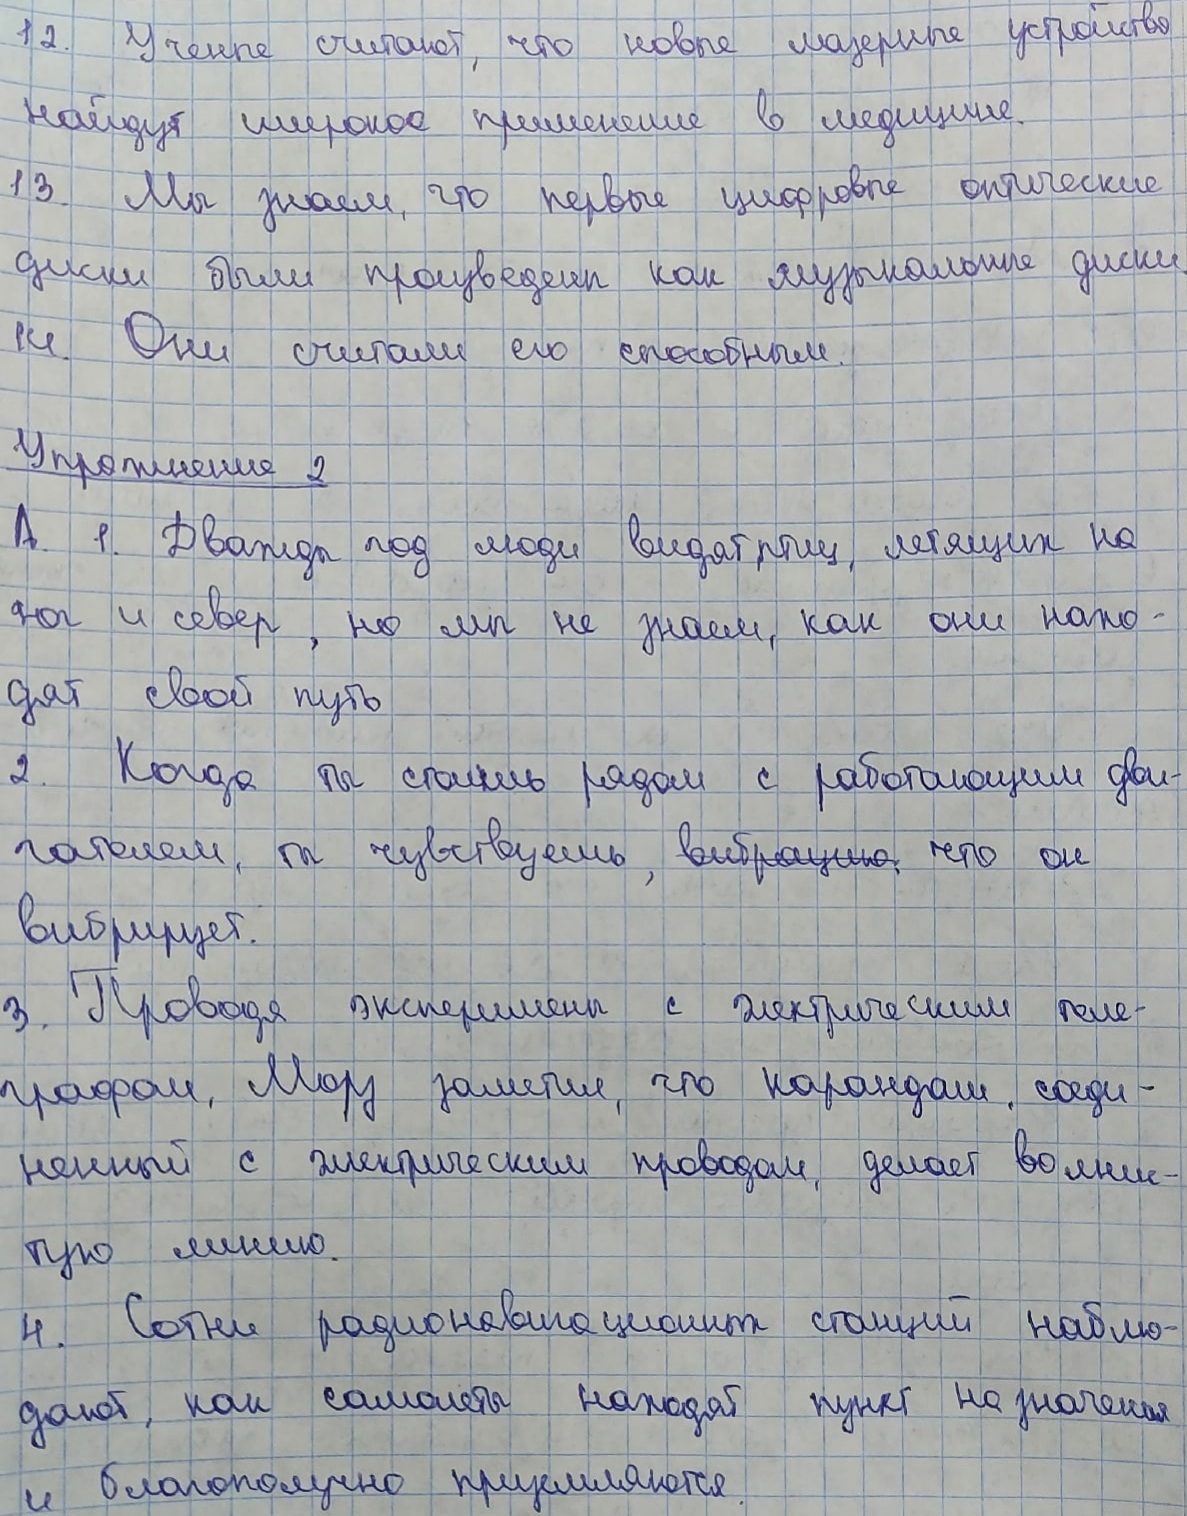 12. Ученые считают, что новые лазерные устройства
найдут широкое применение в медицине.
13. Мы знаем, что первые цифровые оптические
диски были произведены как музыкальные диски.
14. Они считали его способным.
Упражнение 2
А. 1. Дважды год люди видят птиц, летящих на
юг и север, но мы не знаем, как они нахо-
дят свой путь
2. Когда ты стоишь рядом с работающим дви-
гателем, ты чувствуешь, вибрацию, что он
вибрирует.
3. Проводя эксперименты с электрическим теле-
графом, Морз заметил, что карандаш, соеди-
ненный с электрическим проводом, делает волнис-
тую линию.
4. Сотни радионавигационных станций наблю-
дают, как самолеты находят пункт назначения
и благополучно приземляются.